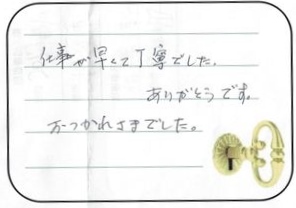 仕事が早くて丁寧でした。
ありがとうです。
おつかれさまでした。